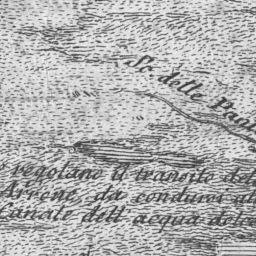 So delle Pan
regolano il transito del
Arrene, da condursi al
Canale dell' acqua del